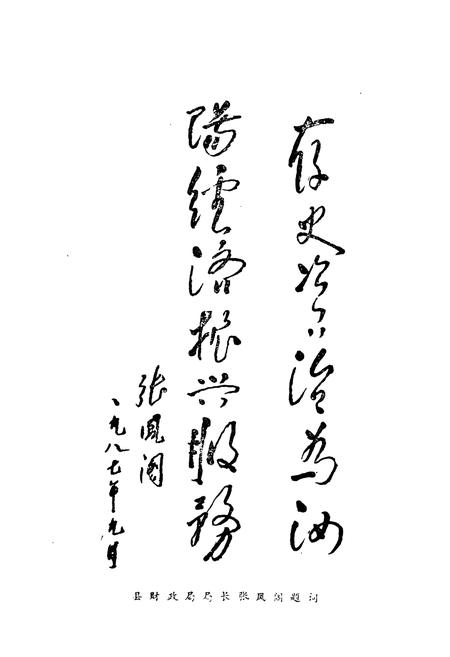 存史资治为汝
陽經济振兴服務
张凤阁
一九八七年九月
县财政局局长张凤阁题词